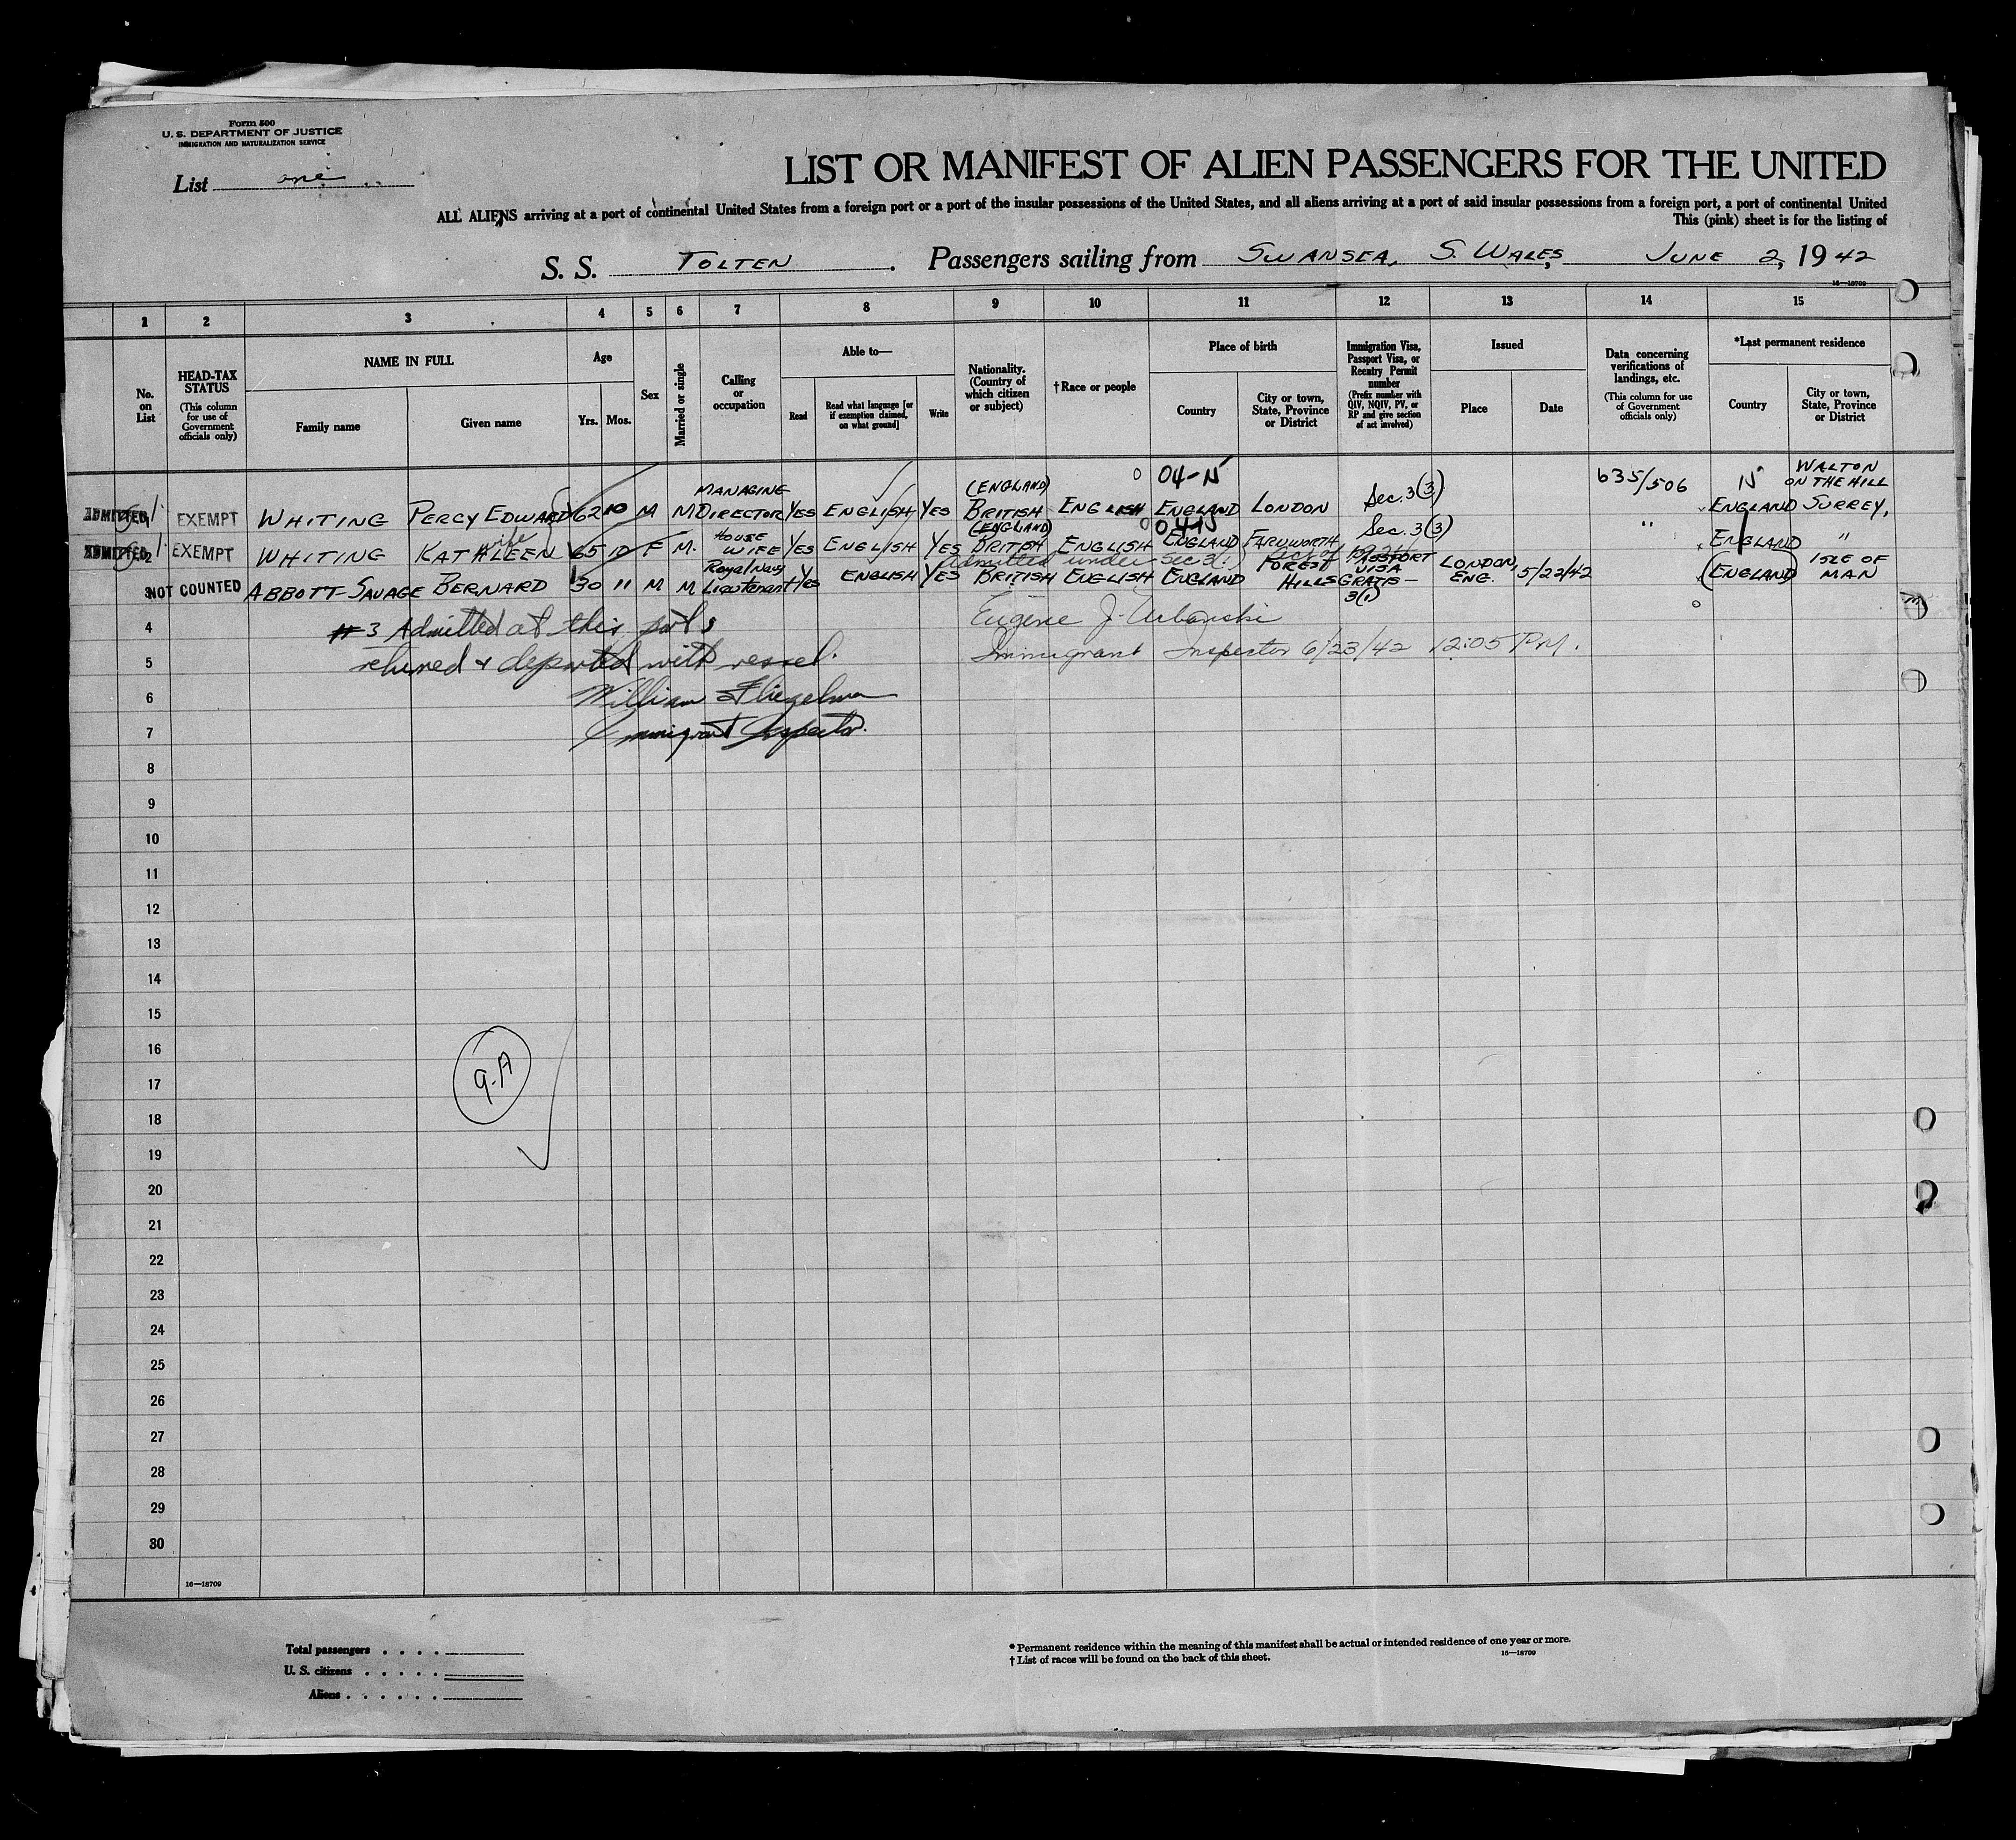 Form 500
U. S. DEPARTMENT OF JUSTICE
IMMIGRATION AND NATURALIZATION SERVICE
List one
LIST OR MANIFEST OF ALIEN PASSENGERS FOR THE UNITED
ALL ALIENS arriving at a port of continental United States from a foreign port or a port of the insular possessions of the United States, and all aliens arriving at a port of said insular possessions from a foreign port, a port of continental United
This (pink) sheet is for the listing of
S. S. TOLTEN. Passengers sailing from SWANSEA, S. WALES, JUNE 2, 1942
16—18709
1 2 3 4 5 6 7 8 9 10 11 12 13 14 15
No. on List
HEAD-TAX STATUS
(This column for use of Government officials only)
NAME IN FULL
Family name
Given name
Age
Yrs. Mos.
Sex
Married or single
Calling or occupation
Able to—
Read
Read what language [or if exemption claimed, on what ground]
Write
Nationality. (Country of which citizen or subject)
†Race or people
Place of birth
Country
City or town, State, Province or District
Immigration Visa, Passport Visa, or Reentry Permit number
(Prefix number with QIV, NQIV, PV, or RP and give section of act involved)
Issued
Place
Date
Data concerning verifications of landings, etc.
(This column for use of Government officials only)
*Last permanent residence
Country
City or town, State, Province or District
ADMITTED 1 EXEMPT WHITING PERCY EDWARD 62 10 M M MANAGING DIRECTOR YES ENGLISH YES (ENGLAND) BRITISH ENGLISH 04-15 ENGLAND LONDON Sec. 3(3) 635/506 15 ENGLAND WALTON ON THE HILL SURREY,
ADMITTED 2 EXEMPT WHITING KATHLEEN wife 65 10 F M. HOUSE WIFE YES ENGLISH YES (ENGLAND) BRITISH ENGLISH 0415 ENGLAND FARNWORTH Sec. 3(3) " ENGLAND "
Admitted under Sec 3(1) Act of 1924
3 NOT COUNTED ABBOTT-SAVAGE BERNARD 30 11 M M Royal Navy Lieutenant Yes ENGLISH YES BRITISH ENGLISH ENGLAND FOREST HILLS PASSPORT VISA GRATIS- 3(1) LONDON, ENG. 5/22/42 (ENGLAND) ISLE OF MAN
4 #3 Admitted at this port, Eugene J. Urbanski
5 reshiped & departed with vessel. Immigrant Inspector 6/23/42 12:05 P.M.
6 William Fliegelman
7 Immigrant Inspector.
8
9
10
11
12
13
14
15
16
17
9-A
18
19
20
21
22
23
24
25
26
27
28
29
30
16—18709
Total passengers . . . .
U. S. citizens . . . . .
Aliens . . . . . .
* Permanent residence within the meaning of this manifest shall be actual or intended residence of one year or more.
† List of races will be found on the back of this sheet.
16—18709